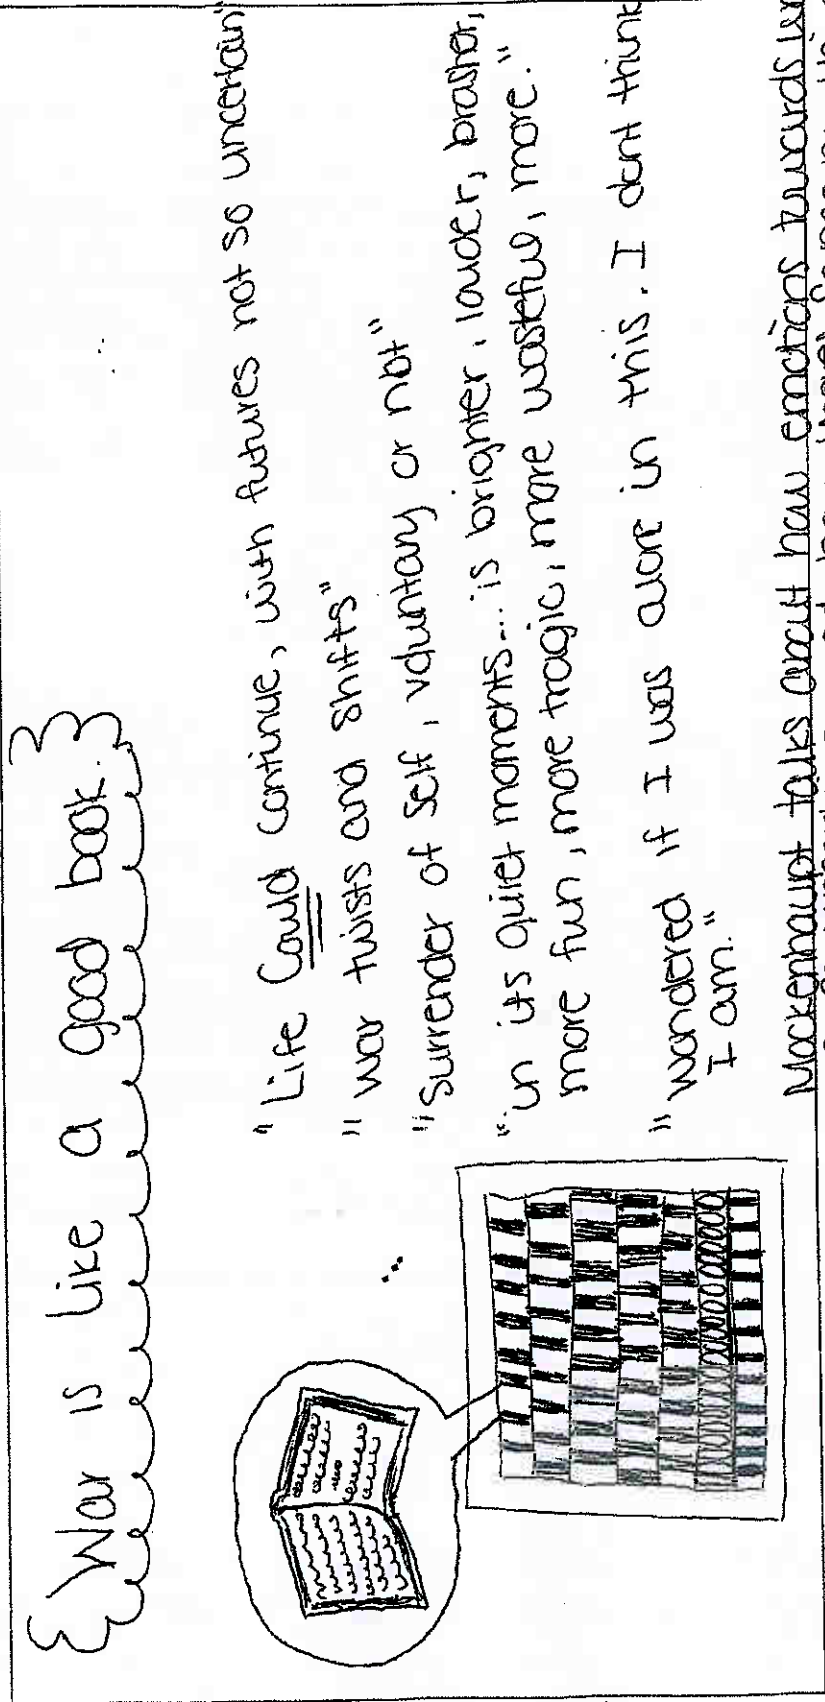 War is like a good book.
"Life Could continue, with futures not so uncertain"
"war twists and shifts"
"Surrender of self, voluntary or not"
"in its quiet moments... is brighter, louder, brasher,
more fun, more tragic, more wasteful, more."
"wondered if I was alone in this. I dont think
I am."
Mockenhaupt talks about how emotions towards